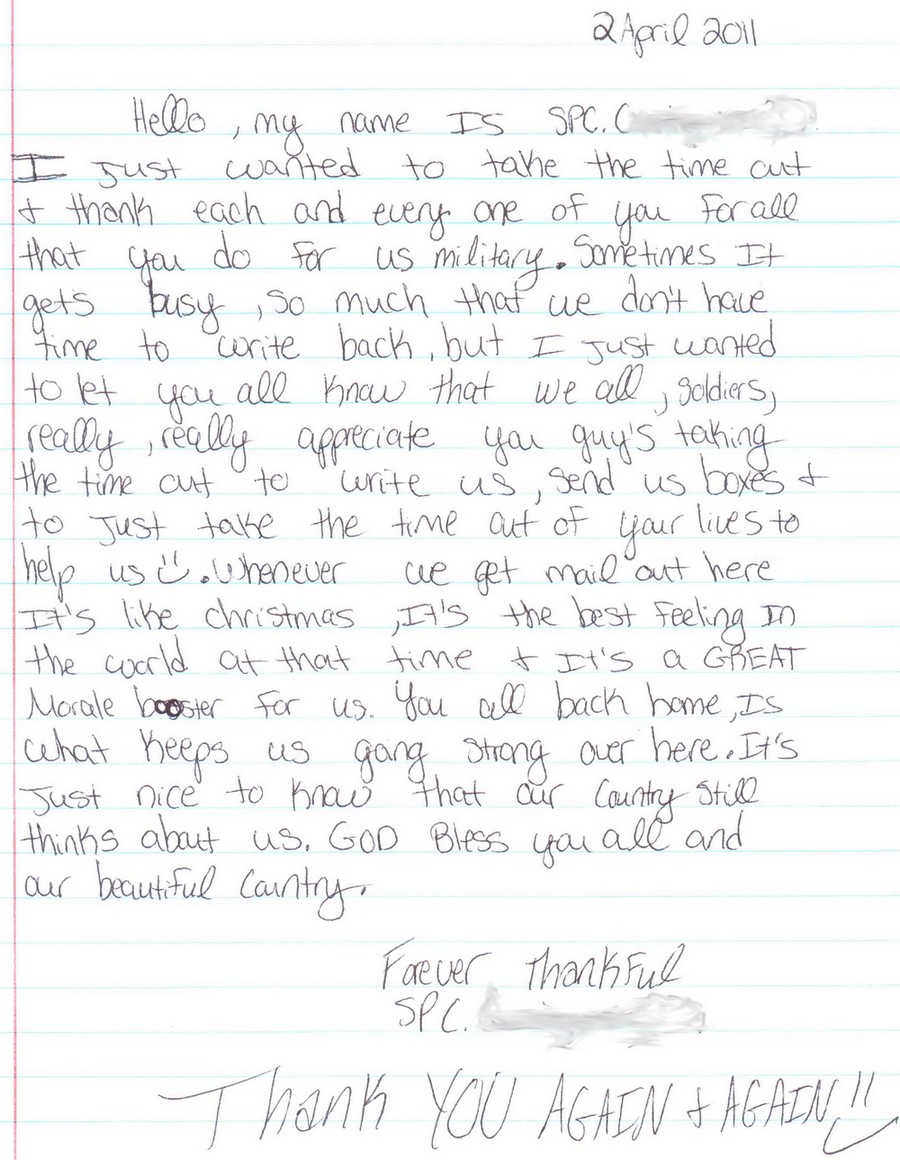 2 April 2011
Hello, my name Is SPC. C
I just wanted to take the time out
+ thank each and every one of you for all
that you do for us military. Sometimes It
gets busy, so much that we don't have
time to write back, but I just wanted
to let you all know that we all, soldiers,
really, really appreciate you guy's taking
the time out to write us, send us boxes +
to just take the time out of your lives to
help us ü. Whenever we get mail out here
It's like christmas, It's the best feeling In
the world at that time + It's a GREAT
Morale booster for us. You all back home, Is
what keeps us going strong over here. It's
just nice to know that our Country still
thinks about us. GOD Bless you all and
our beautiful Country.
Forever Thankful
SPC.
Thank YOU AGAIN + AGAIN!!